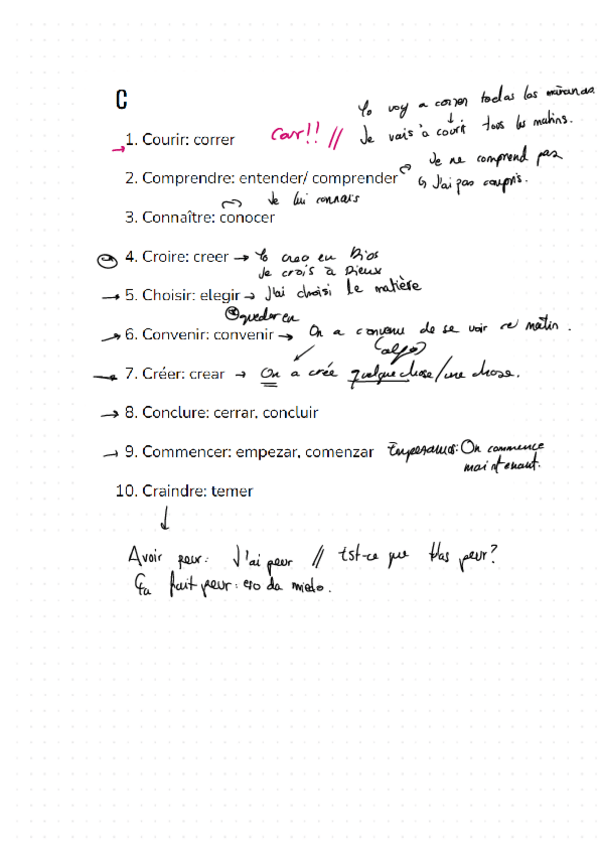 C
Yo voy a correr todas las mañanas.
1. Courir: correr Car!! // Je vais à courir tous les matins.
2. Comprendre: entender/ comprender Je ne comprend pas
J'ai pas compris.
Je lui connais
3. Connaître: conocer
4. Croire: creer → Yo creo en Dios
Je crois à Dieux
5. Choisir: elegir → J'ai choisi le matière
quedar en
6. Convenir: convenir → On a convenu de se voir ce matin.
(algo)
7. Créer: crear → On a crée quelque chose/une chose.
8. Conclure: cerrar, concluir
9. Commencer: empezar, comenzar Empezamos: On commence
maintenant.
10. Craindre: temer
Avoir peur: J'ai peur // Est-ce que t'as peur?
Ça fait peur: eso da miedo.